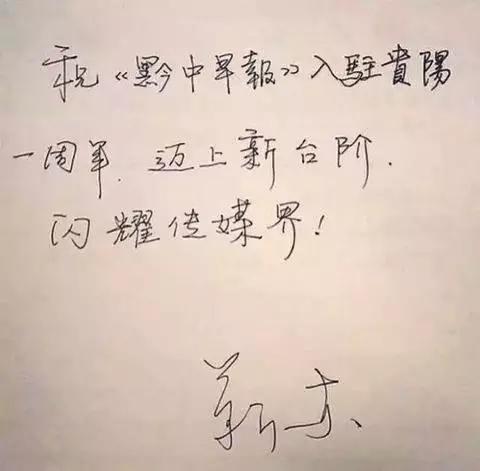 祝《黔中早報》入駐貴陽
一周年，迈上新台阶，
闪耀传媒界！
靳东